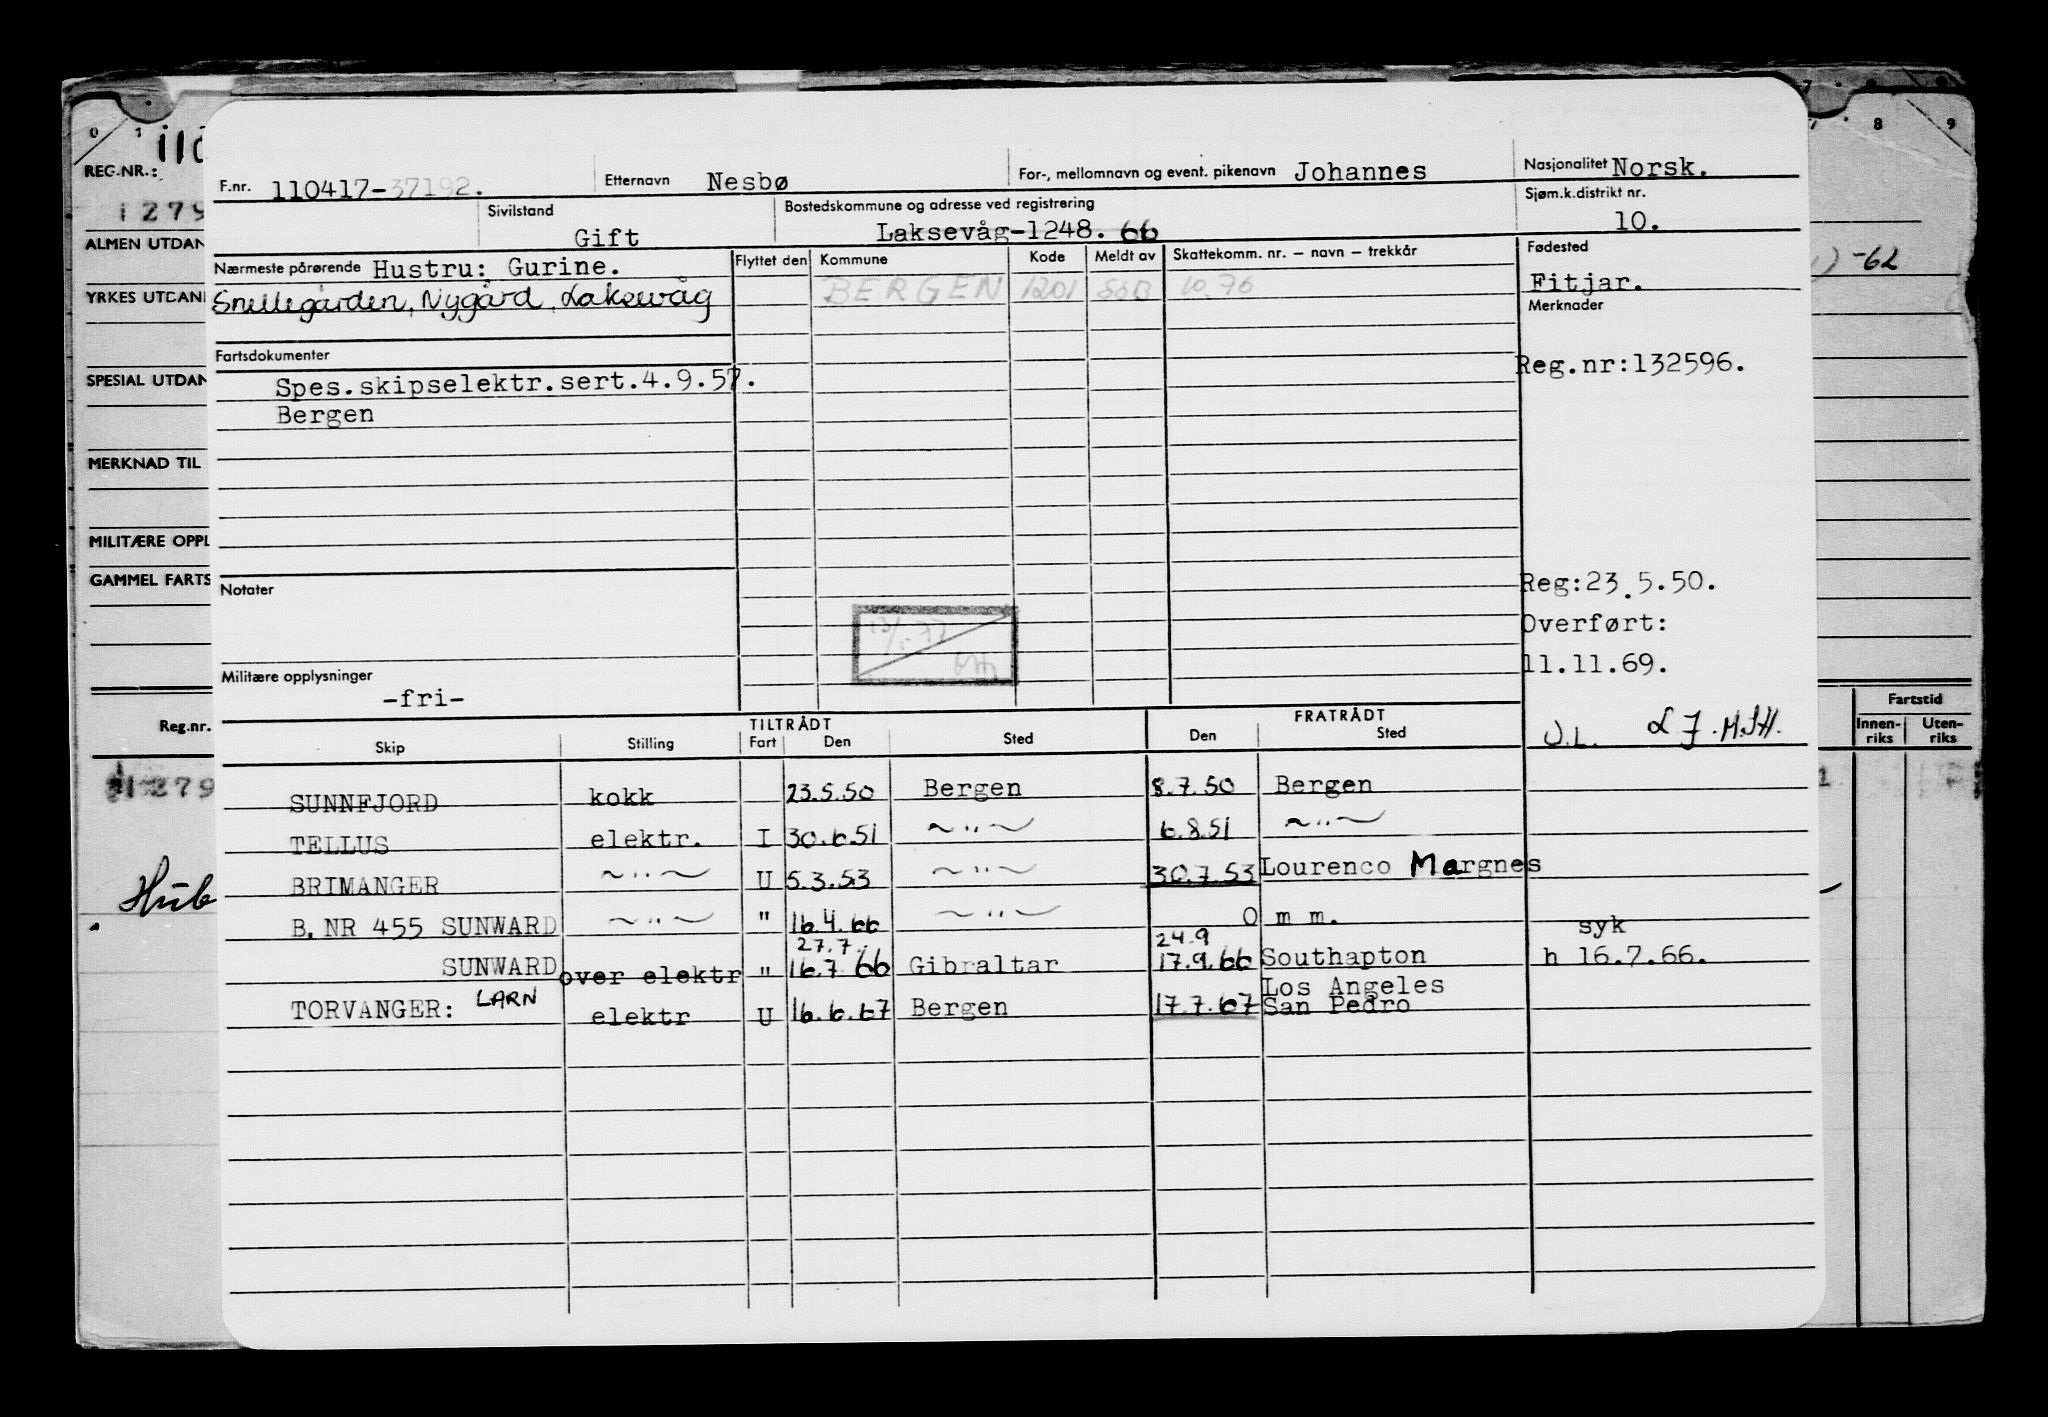 0 1 7 8 9
REG.NR.:
1279
ALMEN UTDAN
YRKES UTDANI
SPESIAL UTDAN
MERKNAD TIL
MILITÆRE OPPL
GAMMEL FARTS
Reg.nr.
1279
-62
Fartstid
Innen-riks Uten-riks
F.nr. 110417-37192. Etternavn Nesbø For-, mellomnavn og event. pikenavn Johannes Nasjonalitet Norsk.
Sivilstand Gift Bostedskommune og adresse ved registrering Laksevåg-1248. 66 Sjøm.k.distrikt nr. 10.
Nærmeste pårørende Hustru: Gurine. Flyttet den Kommune Kode Meldt av Skattekomm. nr. – navn – trekkår Fødested
Snellegården, Nygård, Laksevåg BERGEN 1201 SØB 10.76 Fitjar.
Merknader
Fartsdokumenter
Reg.nr:132596.
Spes.skipselektr.sert.4.9.57.
Bergen
Notater
Reg:23.5.50.
Overført:
11.11.69.
Militære opplysninger
-fri-
TILTRÅDT FRATRÅDT
Skip Stilling Fart Den Sted Den Sted
SUNNFJORD kokk 23.5.50 Bergen 8.7.50 Bergen
TELLUS elektr. I 30.6.51 ~"~ 6.8.51 ~"~
BRIMANGER ~"~ U 5.3.53 ~"~ 30.7.53 Lourenco Margnes
B. NR 455 SUNWARD ~"~ " 16.4.66 ~"~ O m m.
syk
27.7 24.9
SUNWARD over elektr " 16.7 66 Gibraltar 17.9.66 Southapton h 16.7.66.
Los Angeles
TORVANGER: LARN elektr U 16.6.67 Bergen 17.7.67 San Pedro